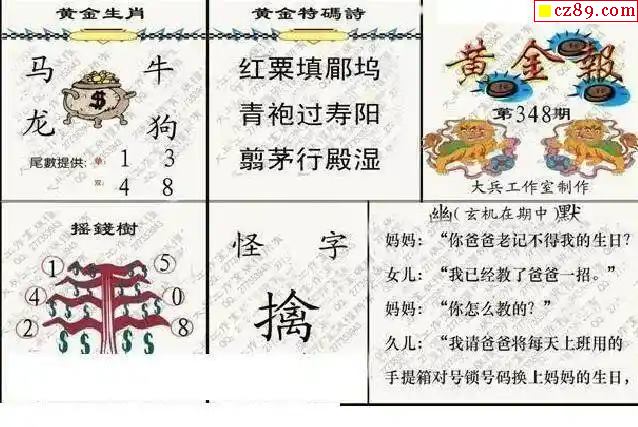 cz89.com
黄金生肖
马 牛
龙 狗
尾數提供：单 1 3
双 4 8
黄金特碼詩
红粟填郿坞
青袍过寿阳
翦茅行殿湿
黄金報
第348期
大兵工作室制作
摇錢樹
1 5
4 0
2 8
怪 字
擒
幽(玄机在期中)默
妈妈：“你爸爸老记不得我的生日？
女儿：“我已经教了爸爸一招。”
妈妈：“你怎么教的？”
久儿：“我请爸爸将每天上班用的
手提箱对号锁号码换上妈妈的生日，